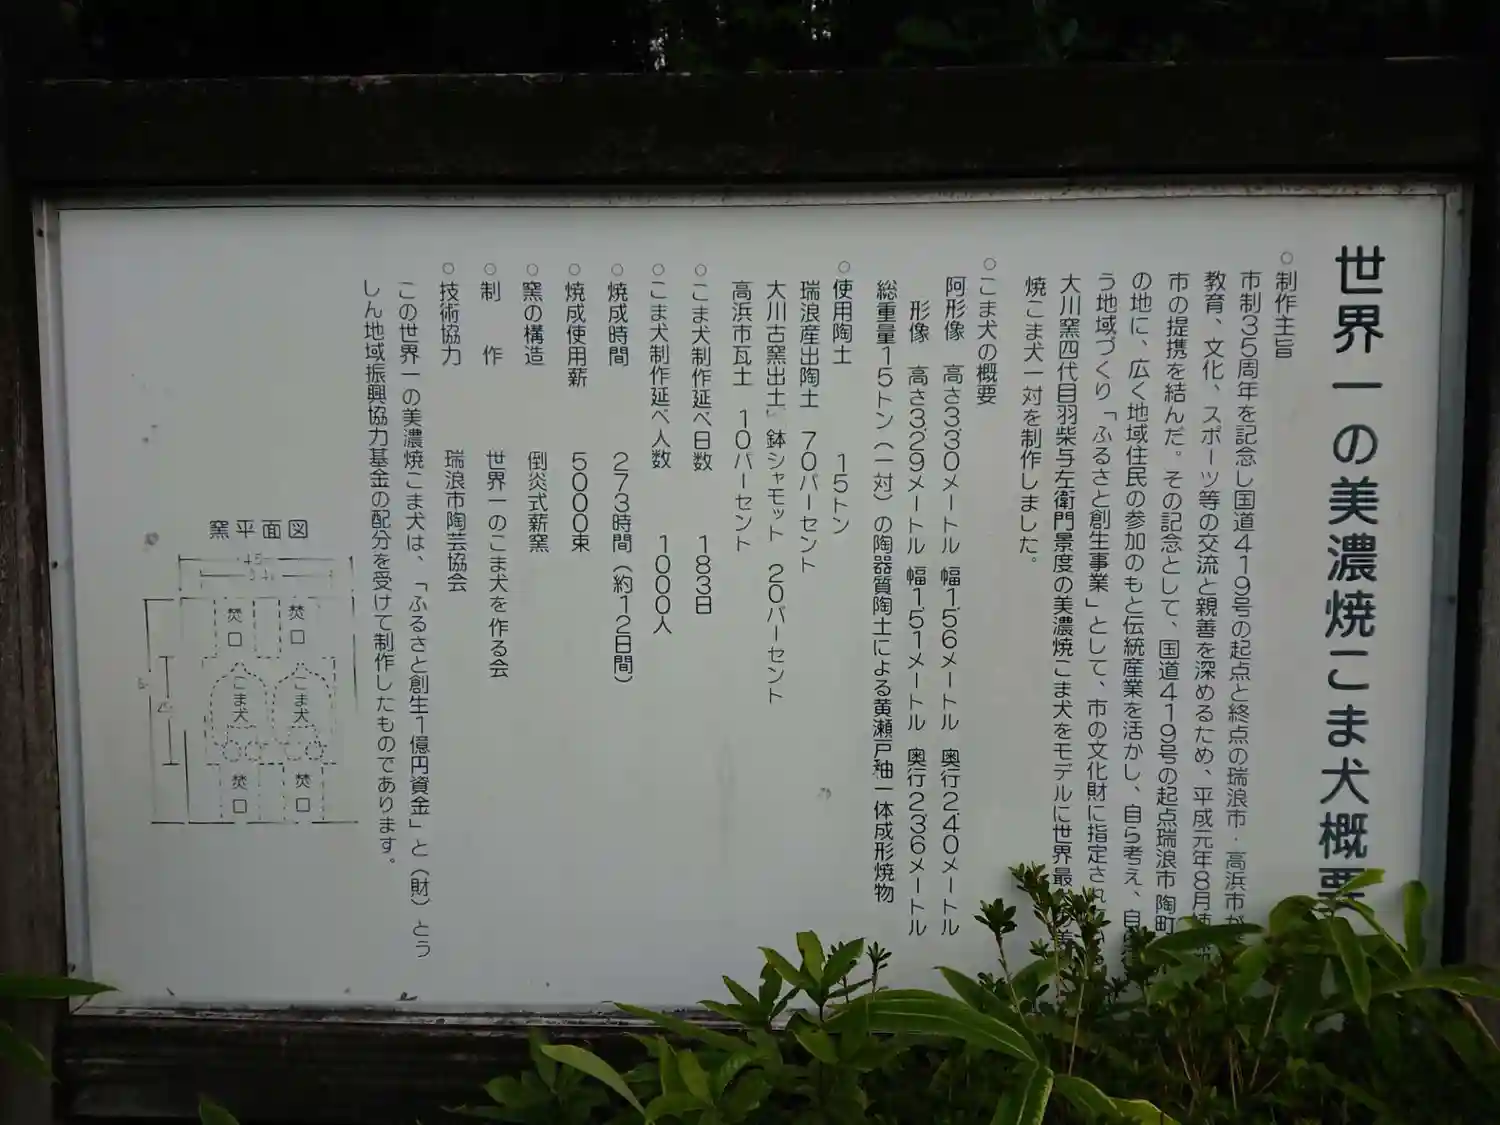 世界一の美濃焼こま犬概要
○制作主旨
市制35周年を記念し国道419号の起点と終点の瑞浪市・高浜市が
教育、文化、スポーツ等の交流と親善を深めるため、平成元年8月姉
市の提携を結んだ。その記念として、国道419号の起点瑞浪市陶町
の地に、広く地域住民の参加のもと伝統産業を活かし、自ら考え、自ら行
う地域づくり「ふるさと創生事業」として、市の文化財に指定されている
大川窯四代目羽柴与左衛門景度の美濃焼こま犬をモデルに世界最
焼こま犬一対を制作しました。
○こま犬の概要
阿形像 高さ3.30メートル 幅1.56メートル 奥行2.40メートル
形像 高さ3.29メートル 幅1.51メートル 奥行2.36メートル
総重量15トン(一対)の陶器質陶土による黄瀬戸釉一体成形焼物
○使用陶土 15トン
瑞浪産出陶土 70パーセント
大川古窯出土」鉢シャモット 20パーセント
高浜市瓦土 10パーセント
○こま犬制作延べ日数 183日
○こま犬制作延べ人数 1000人
○焼成時間 273時間(約12日間)
○焼成使用薪 5000束
○窯の構造 倒炎式薪窯
○制作 世界一のこま犬を作る会
○技術協力 瑞浪市陶芸協会
この世界一の美濃焼こま犬は、「ふるさと創生1億円資金」と(財)とう
しん地域振興協力基金の配分を受けて制作したものであります。
窯平面図
焚口
焚口
こま犬
こま犬
焚口
焚口